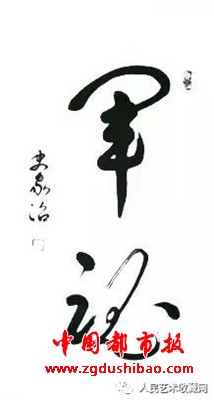 军魂
史家治
中国都市报
www.zgdushibao.com
人民艺术收藏网